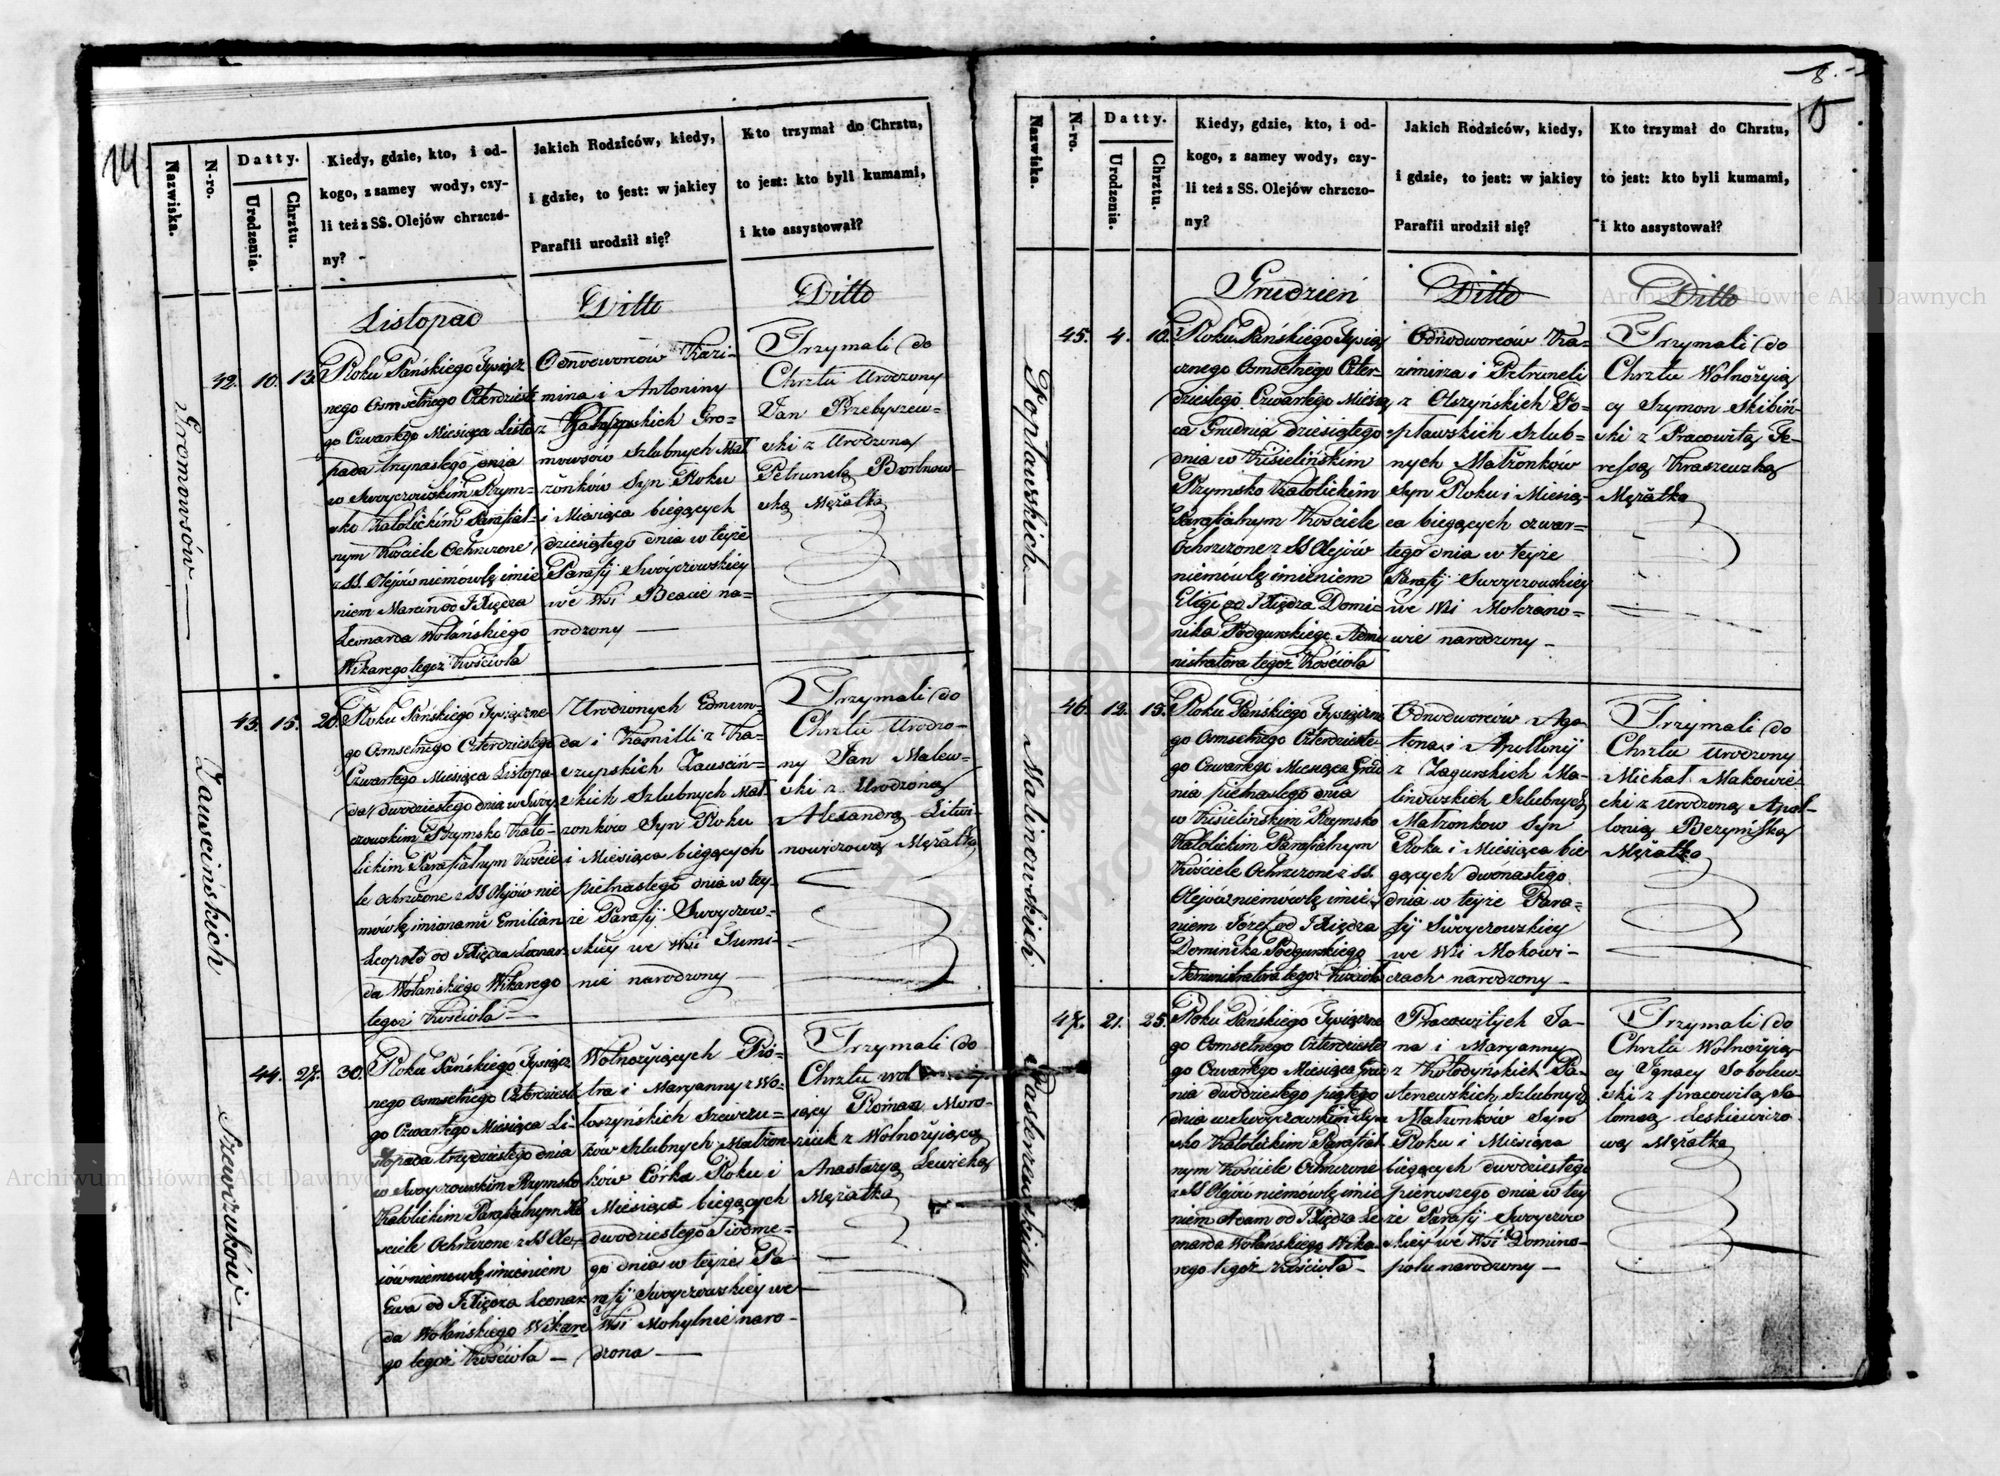 14.
Nazwiska.
N-ro.
Datty.
Urodzenia.
Chrztu.
Kiedy, gdzie, kto, i od-
kogo, z samey wody, czy-
li też z SS. Olejów chrzczo-
ny?
Jakich Rodziców, kiedy,
i gdzie, to jest: w jakiey
Parafii urodził się?
Kto trzymał do Chrztu,
to jest: kto byli kumami,
i kto assystował?
Listopad
Ditto
Ditto
Gromowsów
42. 10. 13.
Roku Pańskiego Tysiącz
nego Osmsetnego Czterdziest
go Czwartego Miesiąca Listo
pada trzynastego dnia
w Swoyczowskim Rzym-
sko Katolickim Parafial-
nym Kościele Ochrzczone
z SS. Olejów niemówlę imie
niem Marcin od Xiędza
Leonarda Wołańskiego
Wikarego tegoż Kościoła
Odnodworców Kazi-
mirza i Antoniny
z
Gro-
mowsów Szlubnych Mał
żonków Syn Roku
i Miesiąca biegących
dziesiątego dnia w teyże
Parafij Swoyczowskiey
we Wsi Beacie na-
rodzony
Trzymali do
Chrztu Urodzony
Jan Przebyszew-
ski z Urodzoną
Petrunelą
ską Mężatką
Zauscińskich
43. 15. 20.
Roku Pańskiego Tysiączne
go Osmsetnego Czterdziestego
Czwartego Miesiąca Listopa
da dwudziestego dnia w Swoy
czowskim Rzymsko Kato-
lickim Parafialnym Koście
le Ochrzczone z SS Olejów nie
mówlę imionami Emilian
Leopold od Xiędza Leonar
da Wołańskiego Wikarego
tegoż Kościoła
Urodzonych Edmun-
da i Kamilli z Ka-
czupskich Zausciń-
skich Szlubnych Mał-
żonków Syn Roku
i Miesiąca biegących
pietnastego dnia w tey-
że Parafij Swoyczow-
skiey we Wsi Tumi-
nie narodzony
Trzymali do
Chrztu Urodzo-
ny Jan Malew-
ski z Urodzoną
Alexandrą Litwi-
nowiczową Mężatką
Szewczuków
44. 27. 30.
Roku Pańskiego Tysiącz
nego Osmsetnego Czterdziest
go Czwartego Miesiąca Li-
stopada trzydziestego dnia
w Swoyczowskim Rzymsko
Katolickim Parafialnym Ko
ściele Ochrzczone z SS Ole-
iów niemowlę imieniem
Ewa od Xiędza Leonar
da Wołańskiego Wikare
go tegoż Kościoła
Wolnożyiących Pio-
tra i Maryanny z Wo-
łoszyńskich Szewczu-
ków Szlubnych Małżon
ków Córka Roku i
Miesiąca biegących
dwudziestego siodme-
go dnia w teyże Pa-
rafij Swoyczowskiey we
Wsi Mohylnie naro-
dzona
Trzymali do
Chrztu wol
iący Roman Moro-
ziuk z Wolnożyiącą
Anastazyą Lewicką
Mężatką
8.
15
Nazwiska.
N-ro.
Datty.
Urodzenia.
Chrztu.
Kiedy, gdzie, kto, i od-
kogo, z samey wody, czy-
li też z SS. Olejów chrzczo-
ny?
Jakich Rodziców, kiedy,
i gdzie, to jest: w jakiey
Parafii urodził się?
Kto trzymał do Chrztu,
to jest: kto byli kumami,
i kto assystował?
Grudzień
Ditto
Ditto
Popławskich
45. 4. 10.
Roku Pańskiego Tysią
cznego Osmsetnego Czter-
dziestego Czwartego Miesią
ca Grudnia dziesiątego
dnia w Kisielińskim
Rzymsko Katolickim
Parafialnym Kościele
Ochrzczone z SS Olejów
niemówlę imieniem
Eligi od Xiędza Domi-
nika Podgurskiego Admi
nistratora tegoż Kościoła
Odnodworców Ka-
zimirza i Petruneli
z Olszyńskich Po-
pławskich Szlub-
nych Małżonków
Syn Roku i Miesią-
ca biegących czwar-
tego dnia w teyże
Parafij Swoyczowskiey
we Wsi Mokrzano-
wie narodzony
Trzymali do
Chrztu Wolnożyią
cy Szymon Skibiń-
ski z Pracowitą Te-
resyą Kraszewską
Mężatką
Malinowskich
46. 12. 15.
Roku Pańskiego Tysiączne
go Osmsetnego Czterdzieste-
go Czwartego Miesiąca Grud
nia pietnastego dnia
w Kisielińskim Rzymsko
Katolickim Parafialnym
Kościele Ochrzczone z SS.
Olejów niemówlę imie-
niem Józef od Xiędza
Dominika Podgurskiego
Administratora tegoż Kościoła
Odnodworców Aga
tona i Apollinij
z Zagurskich Ma-
linowskich Szlubnych
Małżonkow Syn
Roku i Miesiąca bie
gących dwónastego
dnia w teyże Para-
fij Swoyczowskiey
we Wsi Mokowi-
czach narodzony
Trzymali do
Chrztu Urodzony
Michał Makowie-
cki z Urodzoną Apol-
lonią Berzyńską
Mężatką
Pasterzewskich
47. 21. 25.
Roku Pańskiego Tysiączne
go Osmsetnego Czterdzieste
go Czwartego Miesiąca Grud
nia dwudziestego piątego
dnia w Swoyczowskim Rzym
sko Katolickim Parafial
nym Kościele Ochrzczone
z SS Olejów niemówlę imie
niem Adam od Xiędza Le
onarda Wołańskiego Wika-
rego tegoż Kościoła
Pracowitych Ja-
na i Maryanny
z Kołodyńskich Pa-
Szlubnych
Małżonków Syn
Roku i Miesiąca
biegących dwudziestego
pierwszego dnia w tey
że Parafij Swoyczow
skiey we Wsi Domino-
polu narodzony
Trzymali do
Chrztu Wolnożyią-
cy Ignacy Sobolew-
ski z pracowitą Sa-
lomeą Leskiewiczo-
wą Mężatką
Archiwum Główne Akt Dawnych
Archiwum Główne Akt Dawnych